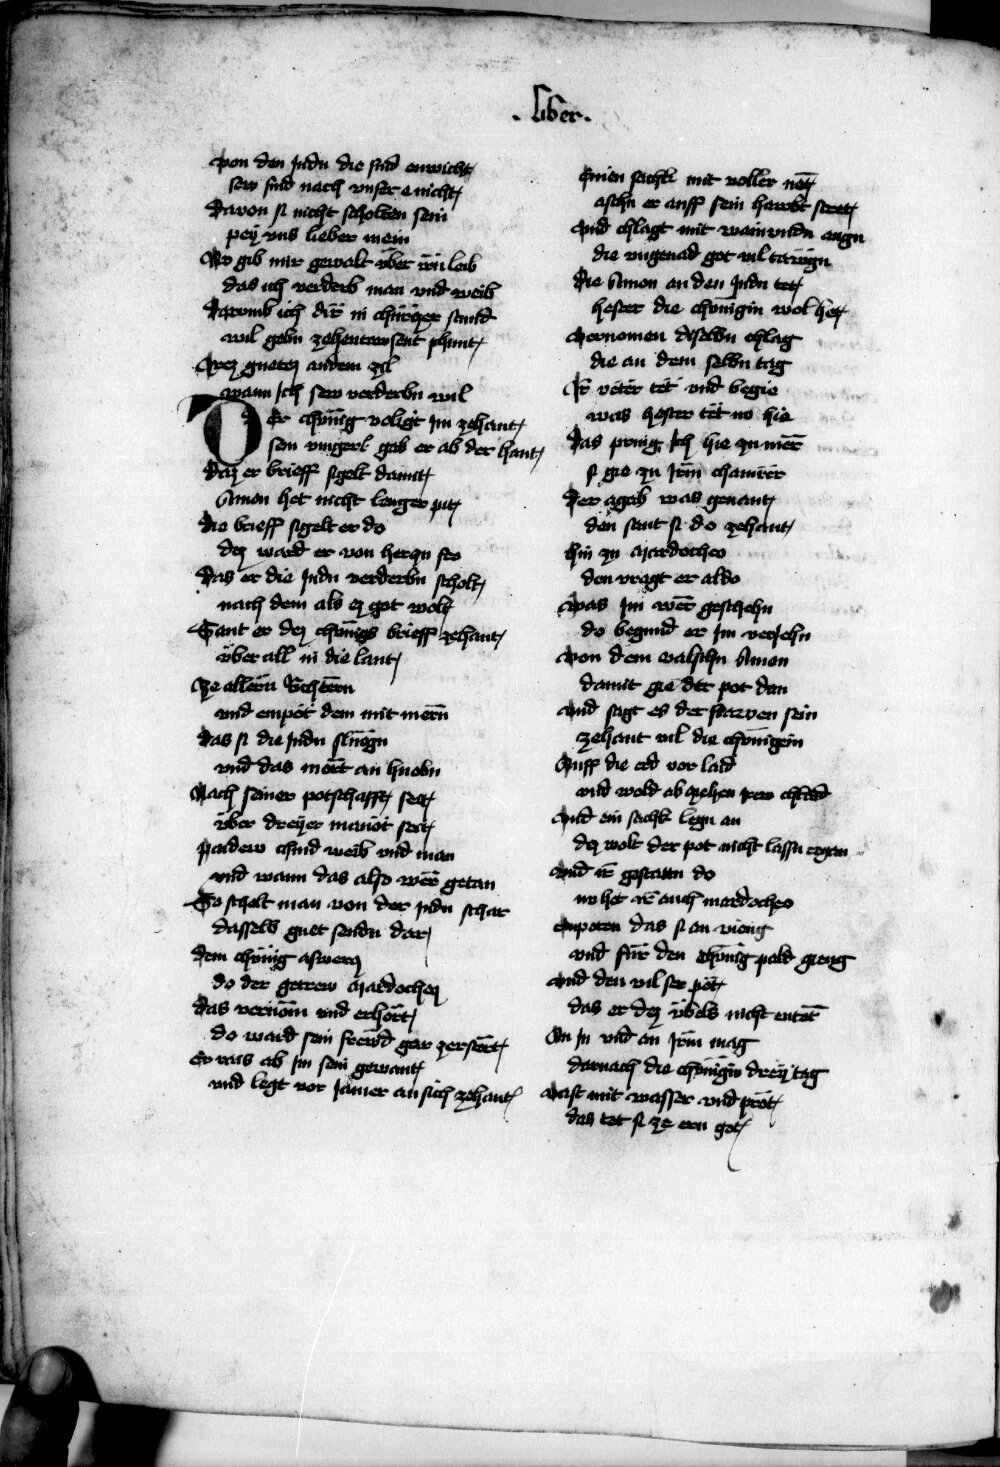 . Liber .
von den Judn die sind enwicht
sew sind nach vnser e nicht
Davon si nicht scholten sein
pey vns lieber mein
No gib mir gewalt vber irn leib
das ich verderb man vnd weib
Darumb ich dir in churczer stund
wil gebn zehentawsent phunt
Wez gnetez andem zil
wann ich sew verderbn wil
Der chvnig voligt im zehant
sein vingerl gab er ab der hant
Daz er brieff sigelt damit
Amon het nicht lenger pit
die brieff sigelt er do
dez ward er von herczn fro
das er die Judn verderbn scholt
nach dem als ez got wolt
Sant er dez chvnigs brieff zehant
vber all in die lant
Ze allern Richtern
vnd empot dem mit mern
das si die Judn sluegn
vnd das mort an huebn
Nach seiner potschafft sect
vber dreyer manot
paidew chind weib vnd man
vnd wann das also wer getan
So scholt man von der Judn schar
dasselb guet sendn dar
dem chvnig asweros
do der getrew Mardochez
das vernom vnd erhort
do ward sein frewd gar zerstort
Er rais ab im sein gewant
vnd legt vor Jamer an sich zehant
Einen sackh mit voller not
aschn er auff sein hawbt stret
vnd chlagt mit wainundn augn
die vngenad got vil tawgn
die Amon an den Judn tet
hester die chvnigin wol het
vernomen diselbn chlag
die an dem selbn tag
Ir veter tet vnd begie
was hester tet no hie
das pring ich hie zu mer
si gie zu irm chamrer
der agab was genant
den sant si do zehant
hin zu Mardocheo
den vragt er aldo
was im wer geschehn
do begund er im veriehn
von dem valschn Amon
damit gie der pot dan
vnd sagt es der frawen sein
zehant vil die chvnigein
Auff die erd vor laid
vnd wold ab ziehen irew chlaid
vnd ein sackh legn an
dez wolt der pot nicht lassn ergan
vnd ir gestatn do
no het ir auch mardocheo
enpoten das si an vieng
vnd fur den chvnig pald gieng
vnd den vil ser pet
das er dez vbels nicht entet
An in vnd an irm mag
darnach die chvnigin drey tag
vast mit wasser vnd prot
das tet si ze ern got